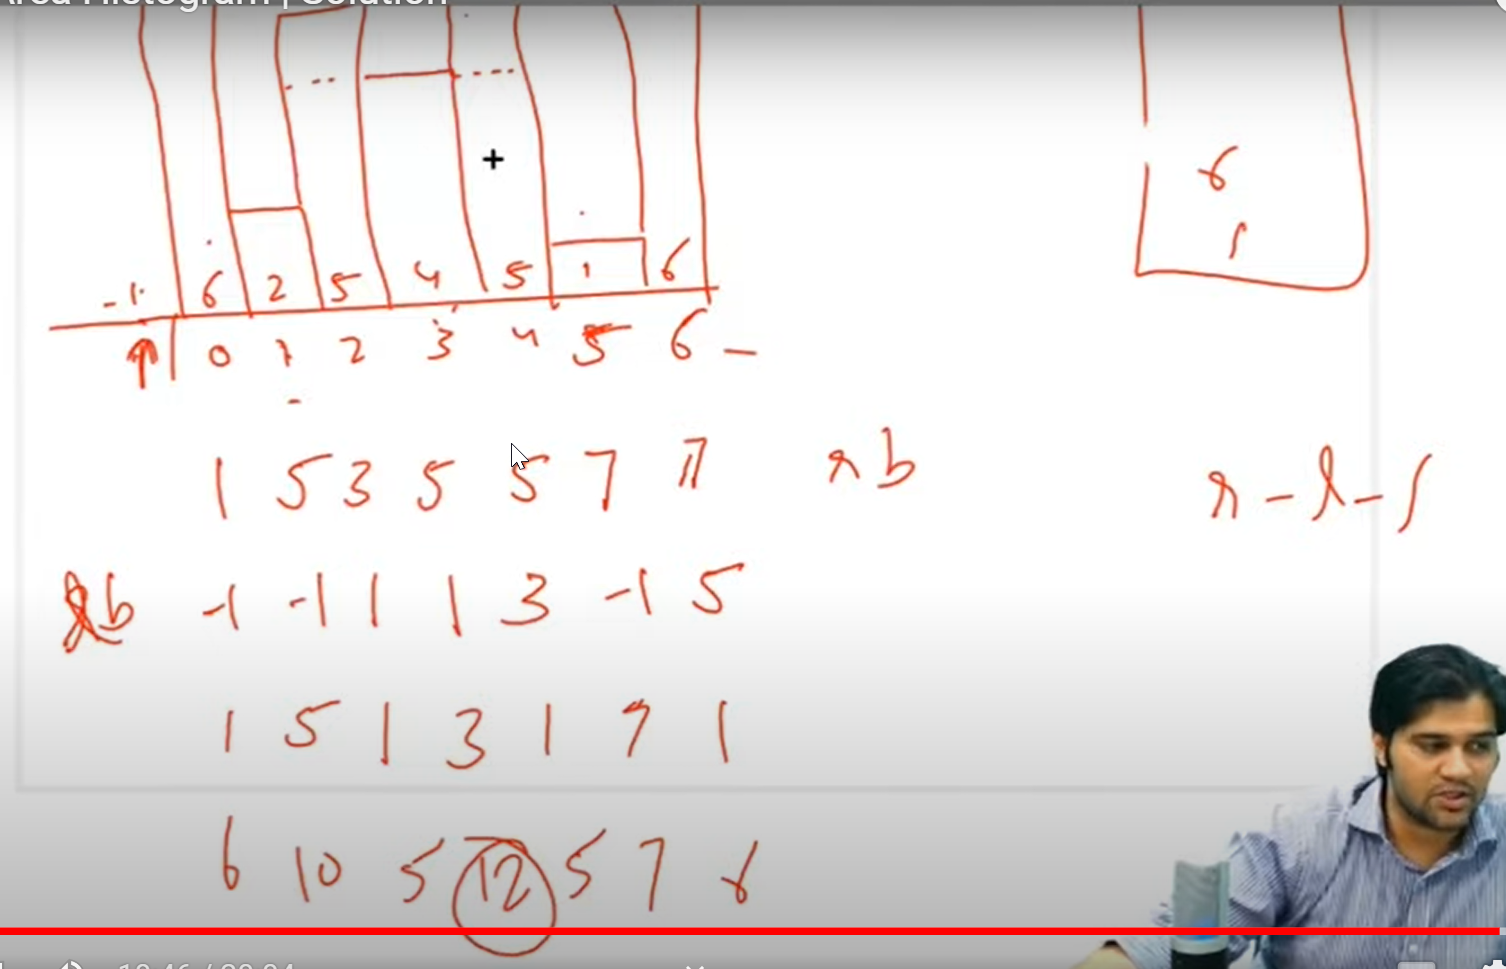 Area Histogram | Solution
-1 6 2 5 4 5 1 6
0 1 2 3 4 5 6 -
6
1
1 5 3 5 5 7 7 rb
r - l - 1
lb -1 -1 1 1 3 -1 5
1 5 1 3 1 7 1
6 10 5 12 5 7 6